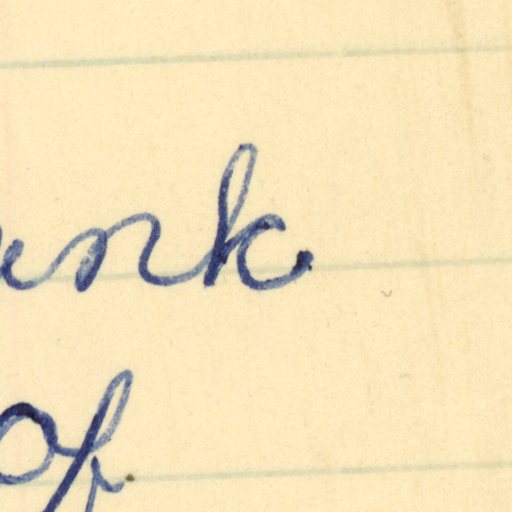 unk
of